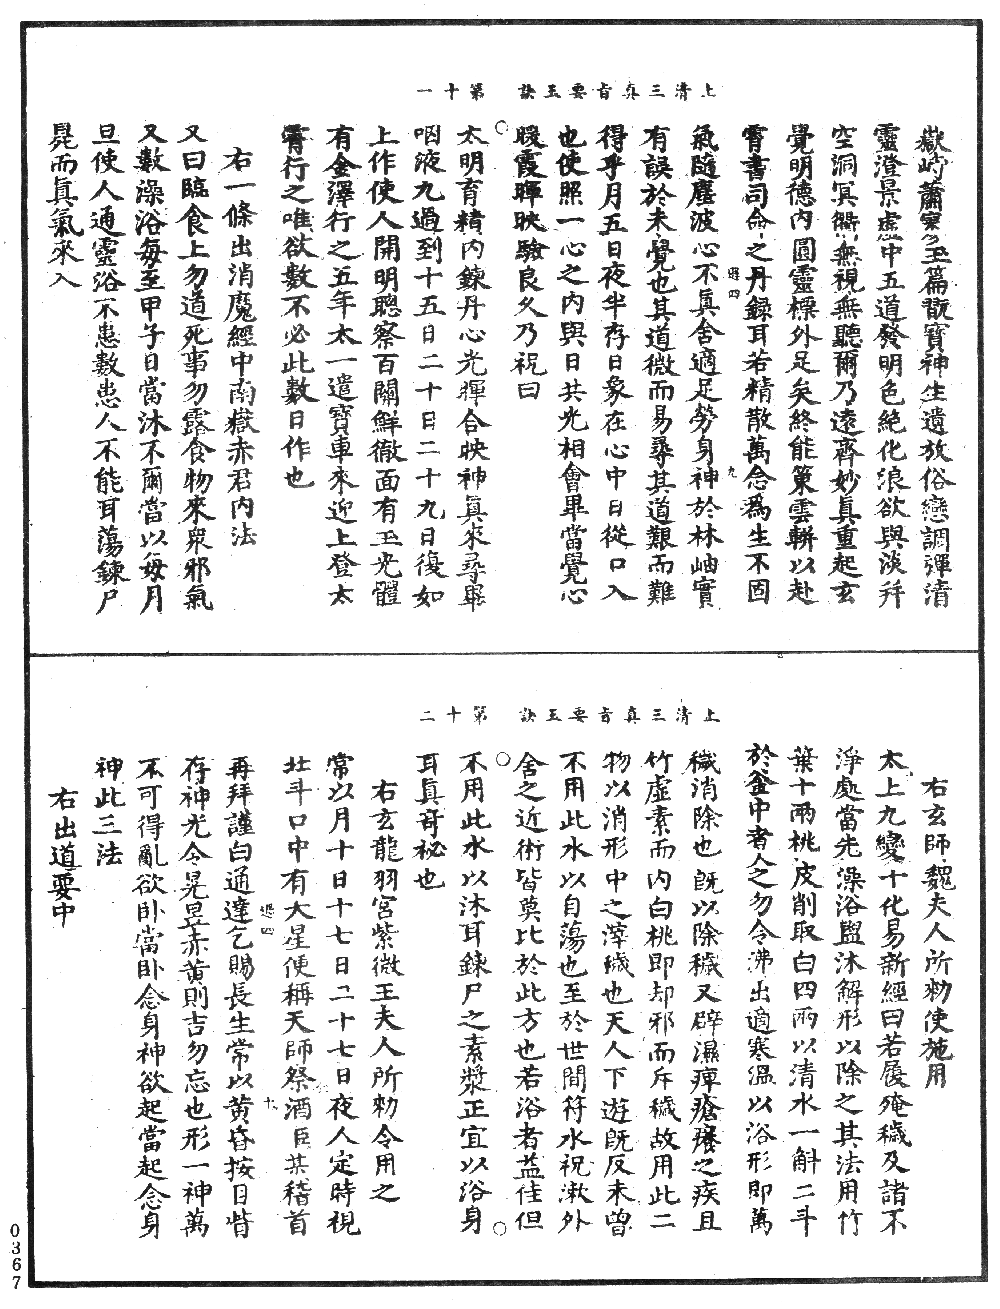 上清三真旨要玉訣 第十一
嶽峙蕭寥至篇翫寶神生遺放俗戀調彈清
靈澄景虛中五道發明色絕化浪欲與淡歼
空洞冥衢無視無聽爾乃遠齊妙真重起玄
覺明德內圓靈標外足矣終能策雲軿以赴
霄書司命之丹録耳若精散萬念為生不固
退四
九
氣隨塵波心不真舍適足勞身神於林岫實
有誤於未覺也其道微而易尋其道艱而難
得乎月五日夜半存日象在心中日從口入
也使照一心之內與日共光相會畢當覺心
暖霞暉映驗良久乃祝曰
太明育精內鍊丹心光暉合映神真來尋畢
咽液九過到十五日二十日二十九日復如
上作使人開明聰察百關鮮徹面有玉光體
有金澤行之五年太一遣寶車來迎上登太
霄行之唯欲數不必此數日作也
右一條出消魔經中南嶽赤君內法
又曰臨食上勿道死事勿露食物來衆邪氣
又數澡浴每至甲子日當沐不爾當以每月
旦使人通靈浴不患數患人不能耳蕩鍊尸
晃而真氣來入
上清三真旨要玉訣 第十二
右玄師魏夫人所勑使施用
太上九變十化易新經曰若履殗穢及諸不
淨處當先澡浴盥沐解形以除之其法用竹
葉十兩桃皮削取白四兩以清水一斛二斗
於釜中者人之勿令沸出適寒溫以浴形即萬
穢消除也既以除穢又辟濕痺瘡癢之疾且
竹虛素而內白桃即却邪而斥穢故用此二
物以消形中之滓穢也天人下遊既反未曾
不用此水以自蕩也至於世間符水祝漱外
舍之近術皆莫比於此方也若浴者益佳但
不用此水以沐耳鍊尸之素漿正宜以浴身
耳真奇祕也
右玄龍羽宮紫微王夫人所勑令用之
常以月十日十七日二十七日夜人定時視
北斗口中有大星便稱天師祭酒臣某稽首
退四
十
再拜謹白通達乞賜長生常以黃昏按目眥
存神光令晃昱赤黃則吉勿忘也形一神萬
不可得亂欲卧當卧念身神欲起當起念身
神此三法
右出道要中
0367